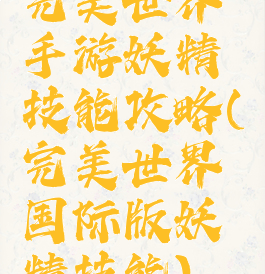 完美世界
手游妖精
技能攻略(
完美世界
国际版妖
精技能)